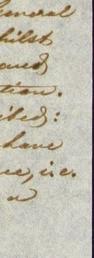 General
whilst
oued
ction.
ited:
have
ue, i.e.
a